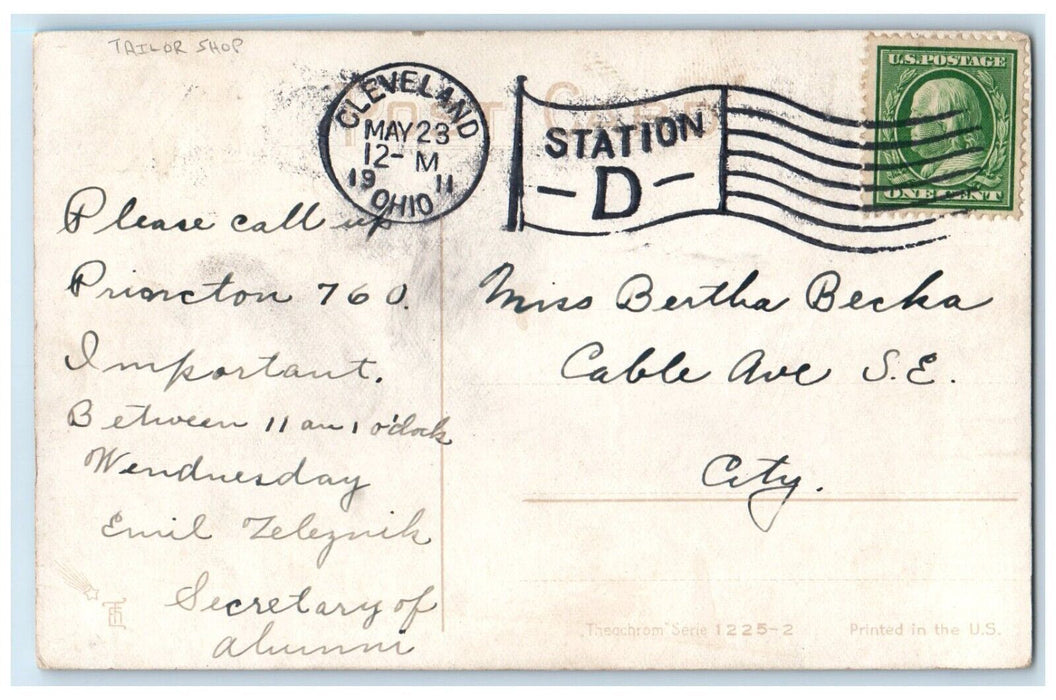 TAILOR SHOP
POST CARD
CLEVELAND
MAY 23
12- M
19 11
OHIO
STATION
- D -
U.S. POSTAGE
ONE CENT
Please call up
Princton 760.
Important.
Between 11 an 1 o'clock
Wendnesday
Emil Zeleznik
Secretary of
Alumni
Miss Bertha Becka
Cable Ave S.E.
City.
"Theochrom" Serie 1225-2
Printed in the U.S.